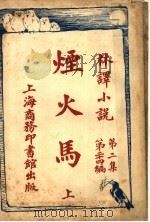 林譯小説
第二集
第二十四編
煙火馬
上
上海商務印書館出版